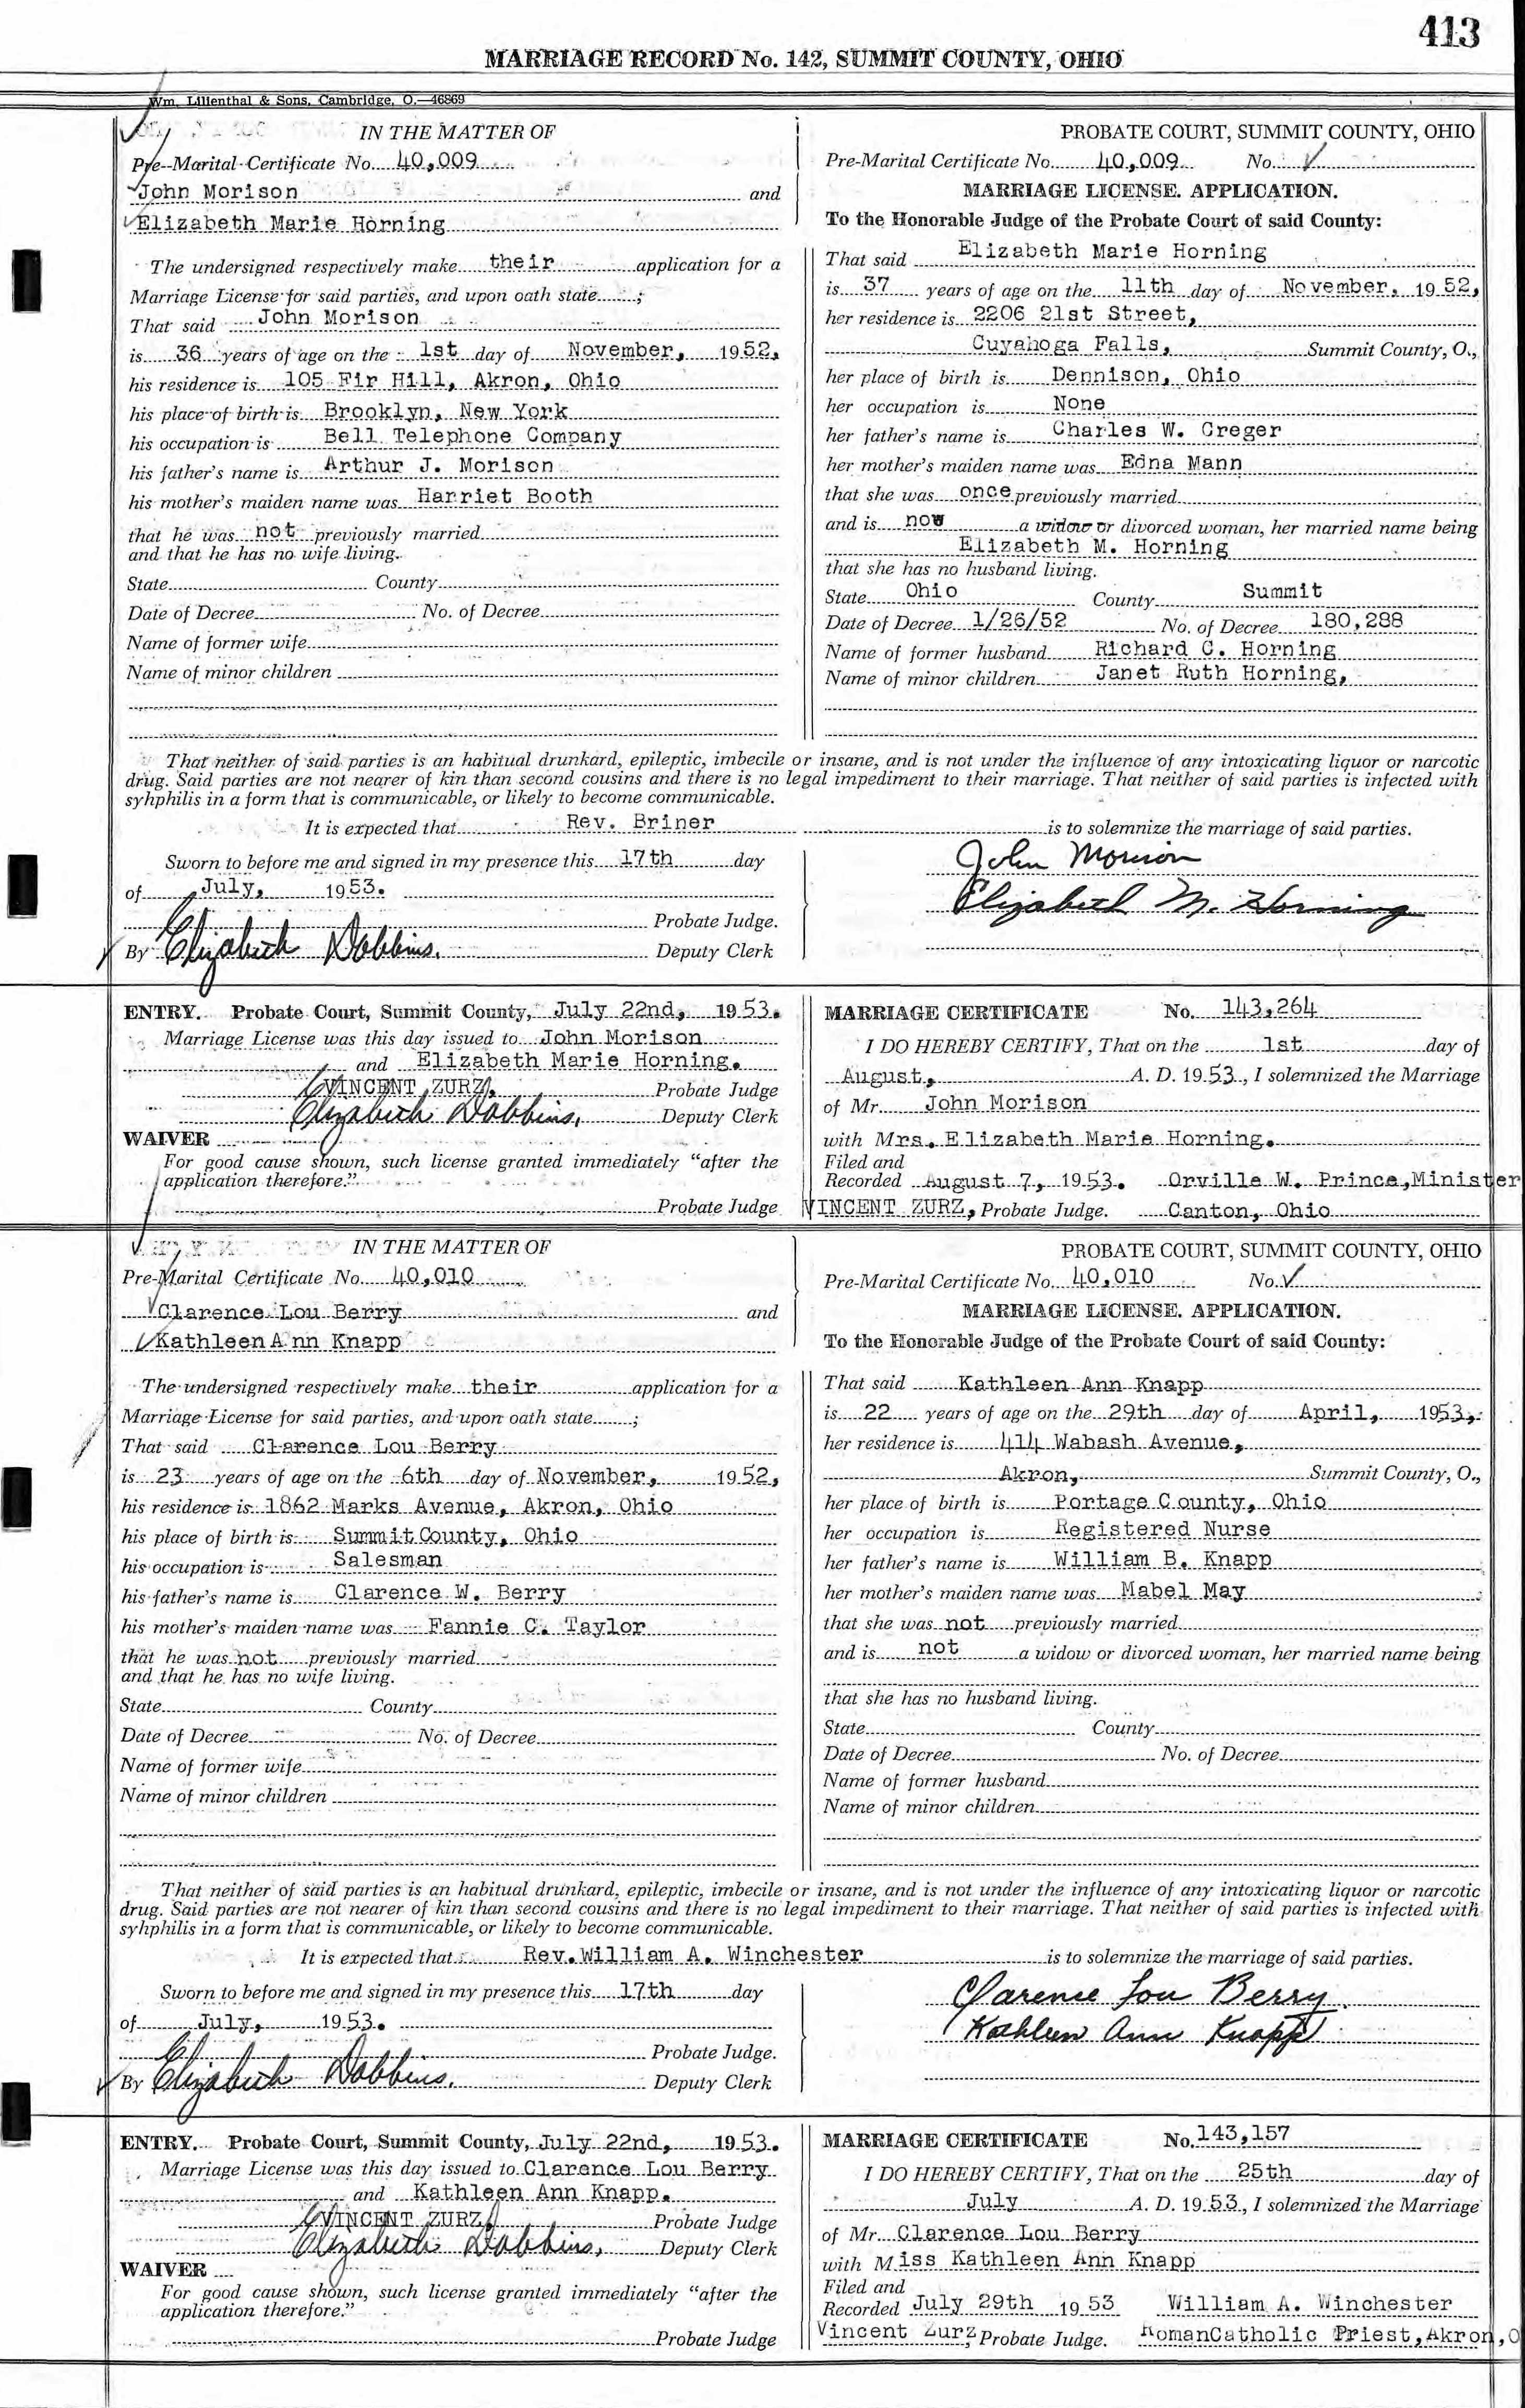 413
MARRIAGE RECORD No. 142, SUMMIT COUNTY, OHIO
Wm. Lilienthal & Sons, Cambridge, O.—46869
IN THE MATTER OF
Pre-Marital Certificate No. 40,009
John Morison and
Elizabeth Marie Horning
The undersigned respectively make their application for a
Marriage License for said parties, and upon oath state ;
That said John Morison
is 36 years of age on the 1st day of November, 1952,
his residence is 105 Fir Hill, Akron, Ohio
his place of birth is Brooklyn, New York
his occupation is Bell Telephone Company
his father's name is Arthur J. Morison
his mother's maiden name was Harriet Booth
that he was not previously married
and that he has no wife living.
State County
Date of Decree No. of Decree
Name of former wife
Name of minor children
PROBATE COURT, SUMMIT COUNTY, OHIO
Pre-Marital Certificate No. 40,009 No.
MARRIAGE LICENSE. APPLICATION.
To the Honorable Judge of the Probate Court of said County:
That said Elizabeth Marie Horning
is 37 years of age on the 11th day of November, 1952,
her residence is 2206 21st Street,
Cuyahoga Falls, Summit County, O.,
her place of birth is Dennison, Ohio
her occupation is None
her father's name is Charles W. Creger
her mother's maiden name was Edna Mann
that she was once previously married
and is now a widow or divorced woman, her married name being
Elizabeth M. Horning
that she has no husband living.
State Ohio County Summit
Date of Decree 1/26/52 No. of Decree 180,288
Name of former husband Richard C. Horning
Name of minor children Janet Ruth Horning,
That neither of said parties is an habitual drunkard, epileptic, imbecile or insane, and is not under the influence of any intoxicating liquor or narcotic
drug. Said parties are not nearer of kin than second cousins and there is no legal impediment to their marriage. That neither of said parties is infected with
syhphilis in a form that is communicable, or likely to become communicable.
It is expected that Rev. Briner is to solemnize the marriage of said parties.
Sworn to before me and signed in my presence this 17th day
of July, 1953.
Probate Judge.
By Elizabeth Dobbins. Deputy Clerk
John Morison
Elizabeth M. Horning
ENTRY. Probate Court, Summit County, July 22nd, 1953.
Marriage License was this day issued to John Morison
and Elizabeth Marie Horning.
VINCENT ZURZ, Probate Judge
Elizabeth Dobbins, Deputy Clerk
WAIVER
For good cause shown, such license granted immediately "after the
application therefore."
Probate Judge
MARRIAGE CERTIFICATE No. 143,264
I DO HEREBY CERTIFY, That on the 1st day of
August, A. D. 1953, I solemnized the Marriage
of Mr. John Morison
with Mrs. Elizabeth Marie Horning.
Filed and
Recorded August 7, 1953. Orville W. Prince, Minister
VINCENT ZURZ, Probate Judge. Canton, Ohio
IN THE MATTER OF
Pre-Marital Certificate No. 40,010
Clarence Lou Berry and
Kathleen Ann Knapp
The undersigned respectively make their application for a
Marriage License for said parties, and upon oath state ;
That said Clarence Lou Berry
is 23 years of age on the 6th day of November, 1952,
his residence is 1862 Marks Avenue, Akron, Ohio
his place of birth is Summit County, Ohio
his occupation is Salesman
his father's name is Clarence W. Berry
his mother's maiden name was Fannie C. Taylor
that he was not previously married
and that he has no wife living.
State County
Date of Decree No. of Decree
Name of former wife
Name of minor children
PROBATE COURT, SUMMIT COUNTY, OHIO
Pre-Marital Certificate No. 40,010 No.
MARRIAGE LICENSE. APPLICATION.
To the Honorable Judge of the Probate Court of said County:
That said Kathleen Ann Knapp
is 22 years of age on the 29th day of April, 1953,
her residence is 414 Wabash Avenue,
Akron, Summit County, O.,
her place of birth is Portage County, Ohio
her occupation is Registered Nurse
her father's name is William B. Knapp
her mother's maiden name was Mabel May
that she was not previously married
and is not a widow or divorced woman, her married name being
that she has no husband living.
State County
Date of Decree No. of Decree
Name of former husband
Name of minor children
That neither of said parties is an habitual drunkard, epileptic, imbecile or insane, and is not under the influence of any intoxicating liquor or narcotic
drug. Said parties are not nearer of kin than second cousins and there is no legal impediment to their marriage. That neither of said parties is infected with
syhphilis in a form that is communicable, or likely to become communicable.
It is expected that Rev. William A. Winchester is to solemnize the marriage of said parties.
Sworn to before me and signed in my presence this 17th day
of July, 1953.
Probate Judge.
By Elizabeth Dobbins. Deputy Clerk
Clarence Lou Berry
Kathleen Ann Knapp
ENTRY. Probate Court, Summit County, July 22nd, 1953.
Marriage License was this day issued to Clarence Lou Berry
and Kathleen Ann Knapp.
VINCENT ZURZ, Probate Judge
Elizabeth Dobbins, Deputy Clerk
WAIVER
For good cause shown, such license granted immediately "after the
application therefore."
Probate Judge
MARRIAGE CERTIFICATE No. 143,157
I DO HEREBY CERTIFY, That on the 25th day of
July A. D. 1953, I solemnized the Marriage
of Mr. Clarence Lou Berry
with Miss Kathleen Ann Knapp
Filed and
Recorded July 29th 1953 William A. Winchester
Vincent Zurz Probate Judge. Roman Catholic Priest, Akron, O